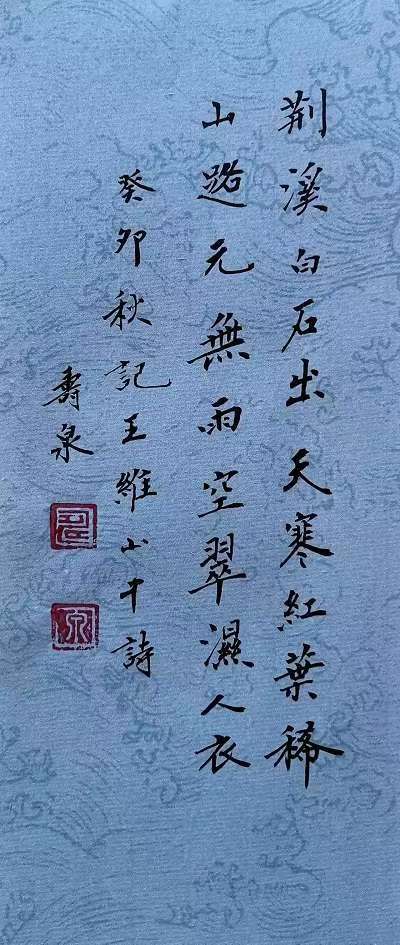 荆溪白石出天寒紅葉稀
山路元無雨空翠濕人衣
癸卯秋記王維山中詩
壽泉